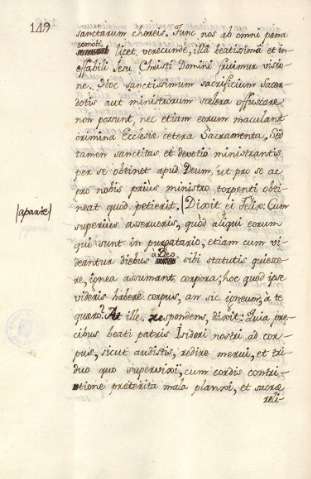 149
sanctarum choreis. Tunc nos ab omni pena
remoti
licet verecunde, illa beatissima et in
effabili Jesu Christi Domini fruimur visio
ne. Hoc sanctissimum sacrificium Sacer
dotis aut ministrorum scelera offuscare
non possunt, nec etiam eorum maculant
crimina Ecclesie cetera Sacramenta, Sed
tamen sanctitas et devotio ministrantis
per se obtinet apud Deum, ut pro se ac
pro nobis prius ministro torpenti obti
neat quod petierit. | Dixit ei Felix: Cum
|aparte|
superius asserueris, quod aliqui eorum
qui sunt in purgatorio, etiam cum vi
deantur diebus a Deo sibi statutis quiesce
re, ignea assumant corpora; hoc quod ipse
videris habere corpus, an sic igneum, a te
quero? At ille respondens, dixit: Quia pre
cibus beati patris Isidori nostri ad cor
pus, sicut audistis, redire merui, et tri
duo quo supervixi, cum cordis contri
tione preterita mala planxi, et sacre